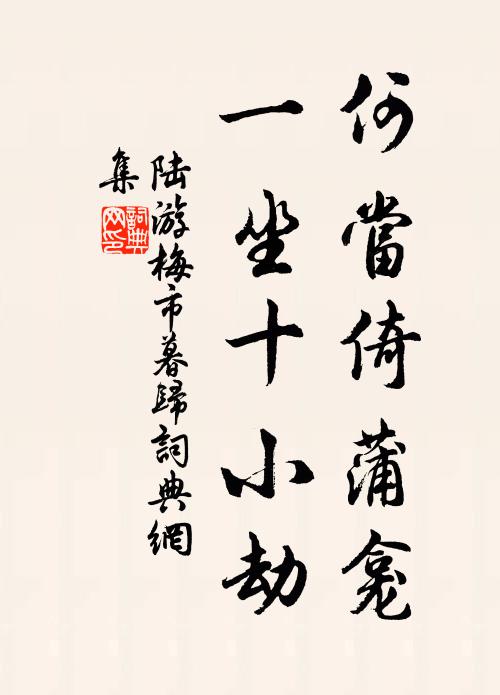 何當倚蒲龕
一坐十小劫
陸游梅市暮歸詞典網
集
詞典网印